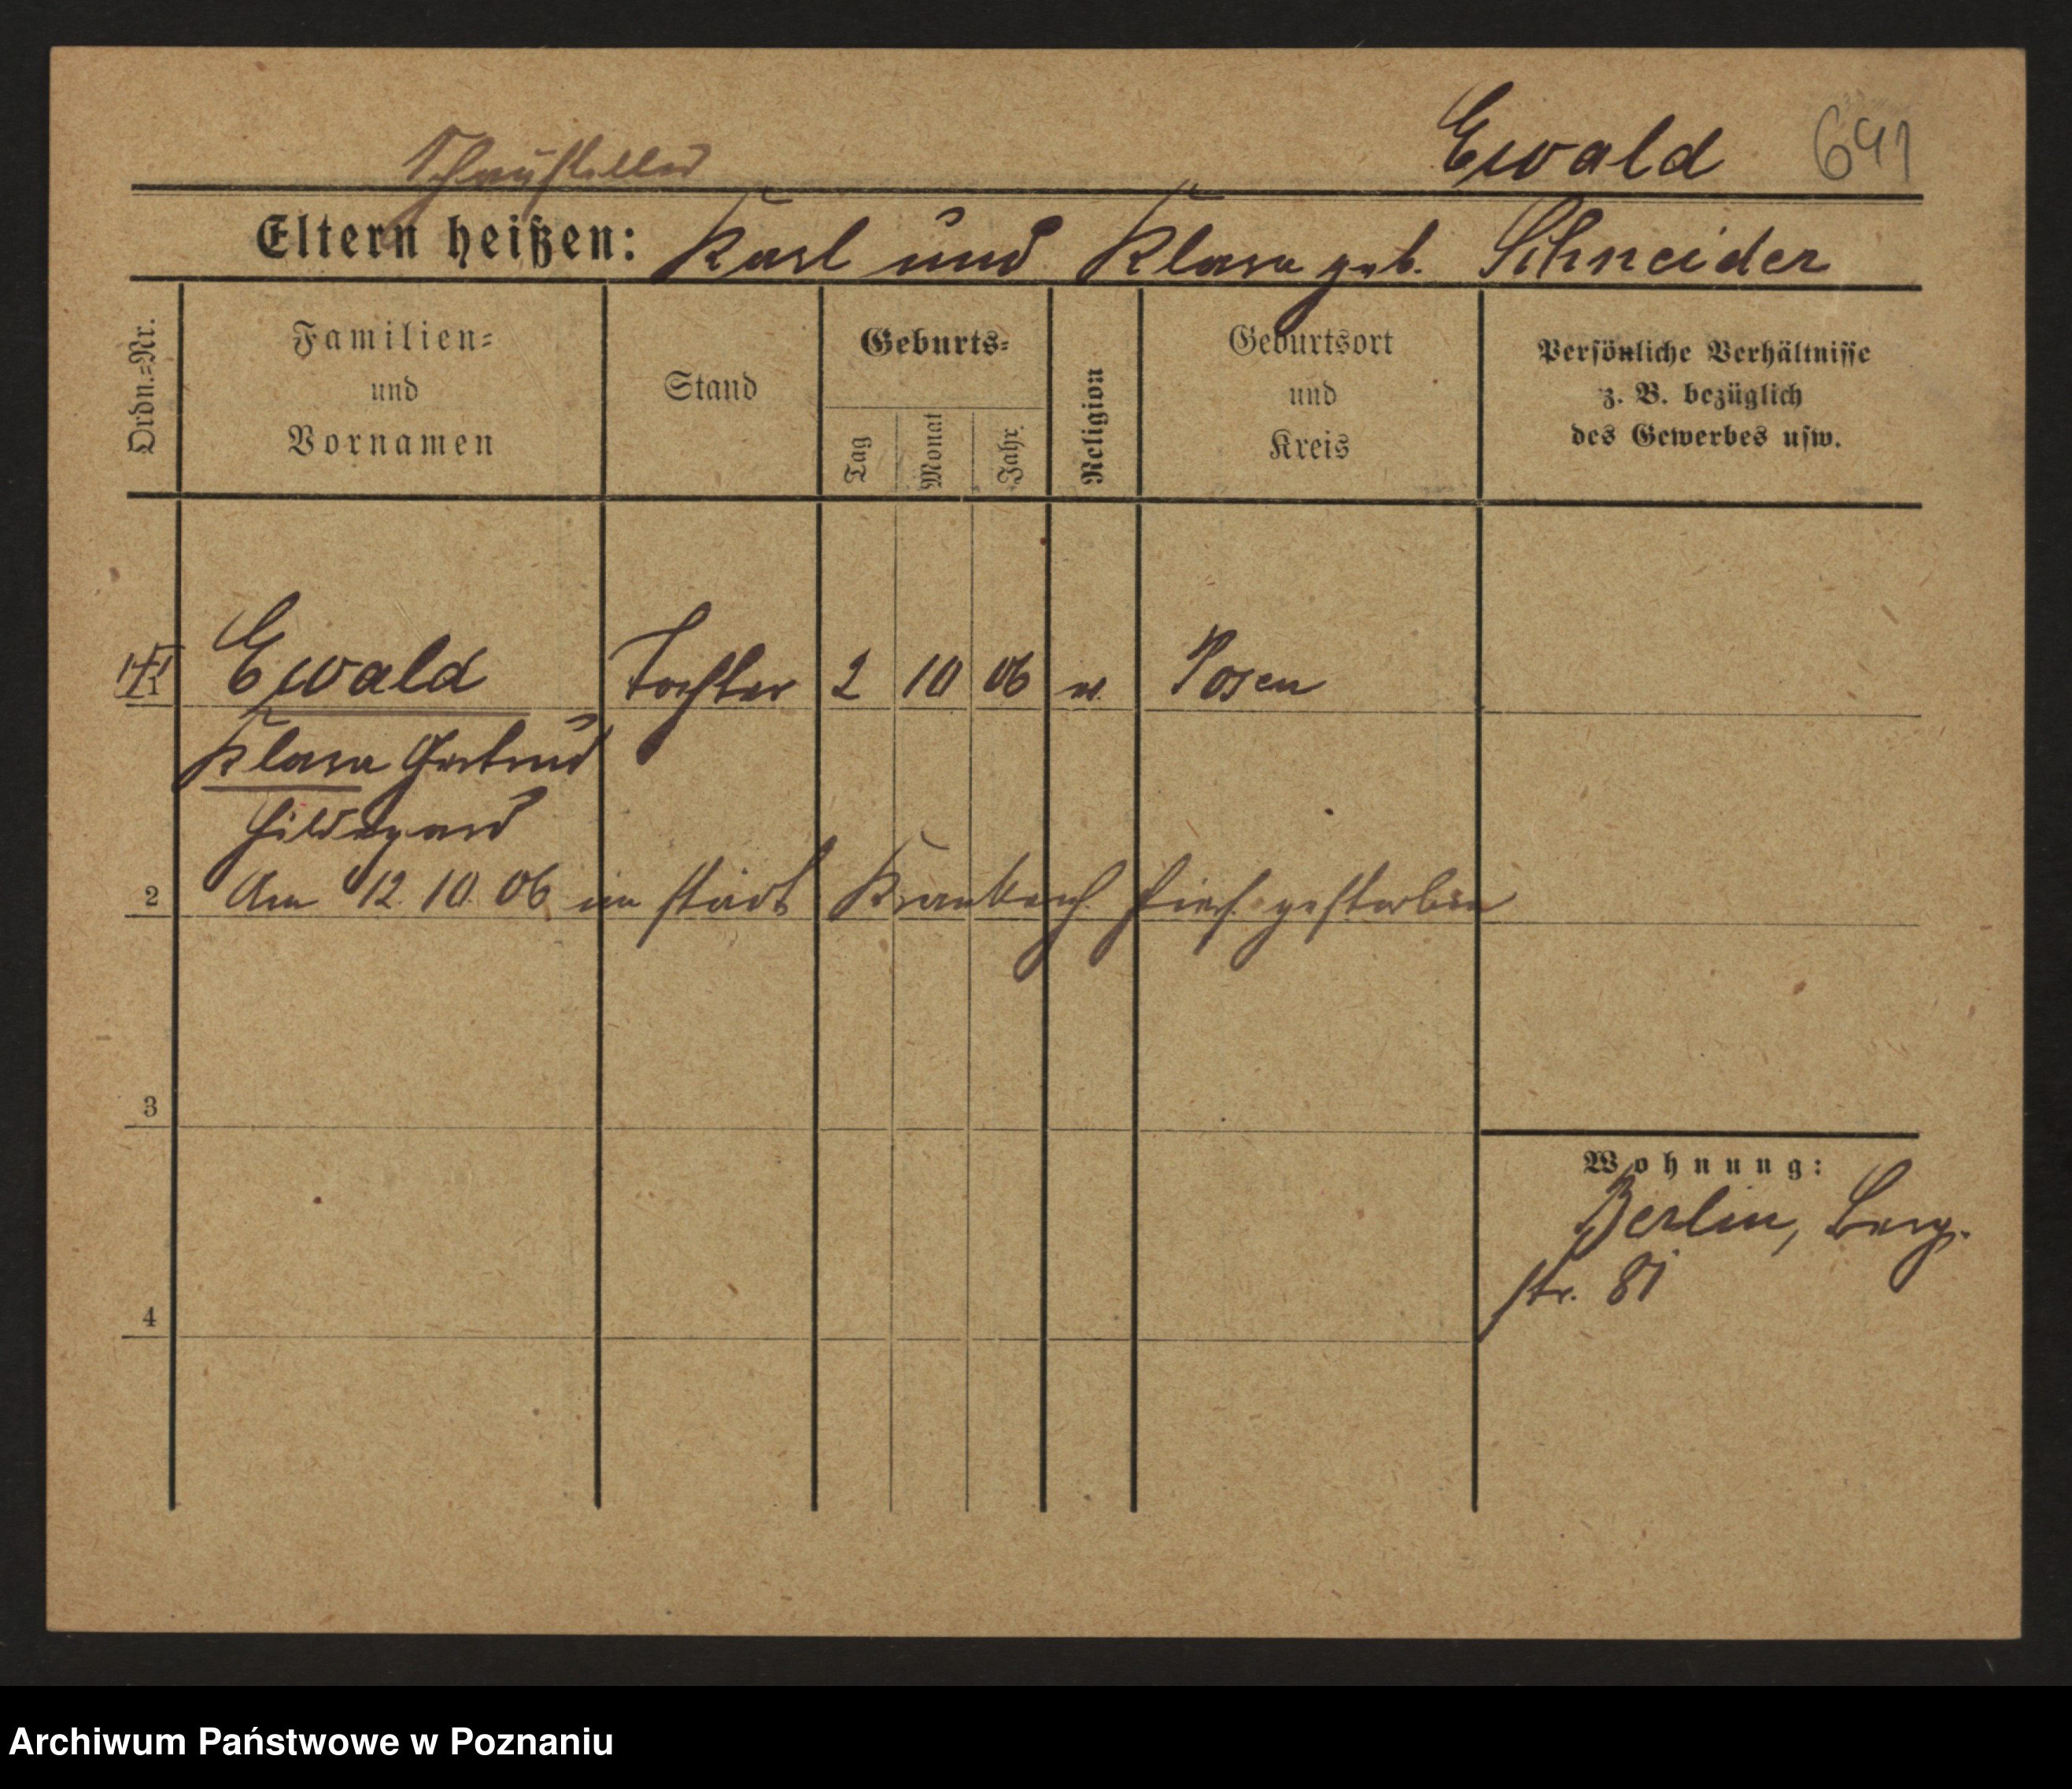 Ewald 691
Schausteller
Eltern heißen: Karl und Klara geb. Schneider
Ordn.=Nr.
Familien=
und
Vornamen
Stand
Geburts=
Tag
Monat
Jahr.
Religion
Geburtsort
und
Kreis
Persönliche Verhältnisse
z. B. bezüglich
des Gewerbes usw.
1 Ewald Tochter 2 10 06 Posen
Klara Gertrud
Hildegard
2 Am 12. 10. 06 im städt Krankenh. hies. gestorben
3
Wohnung:
Berlin, Berg-
str. 81
4
Archiwum Państwowe w Poznaniu